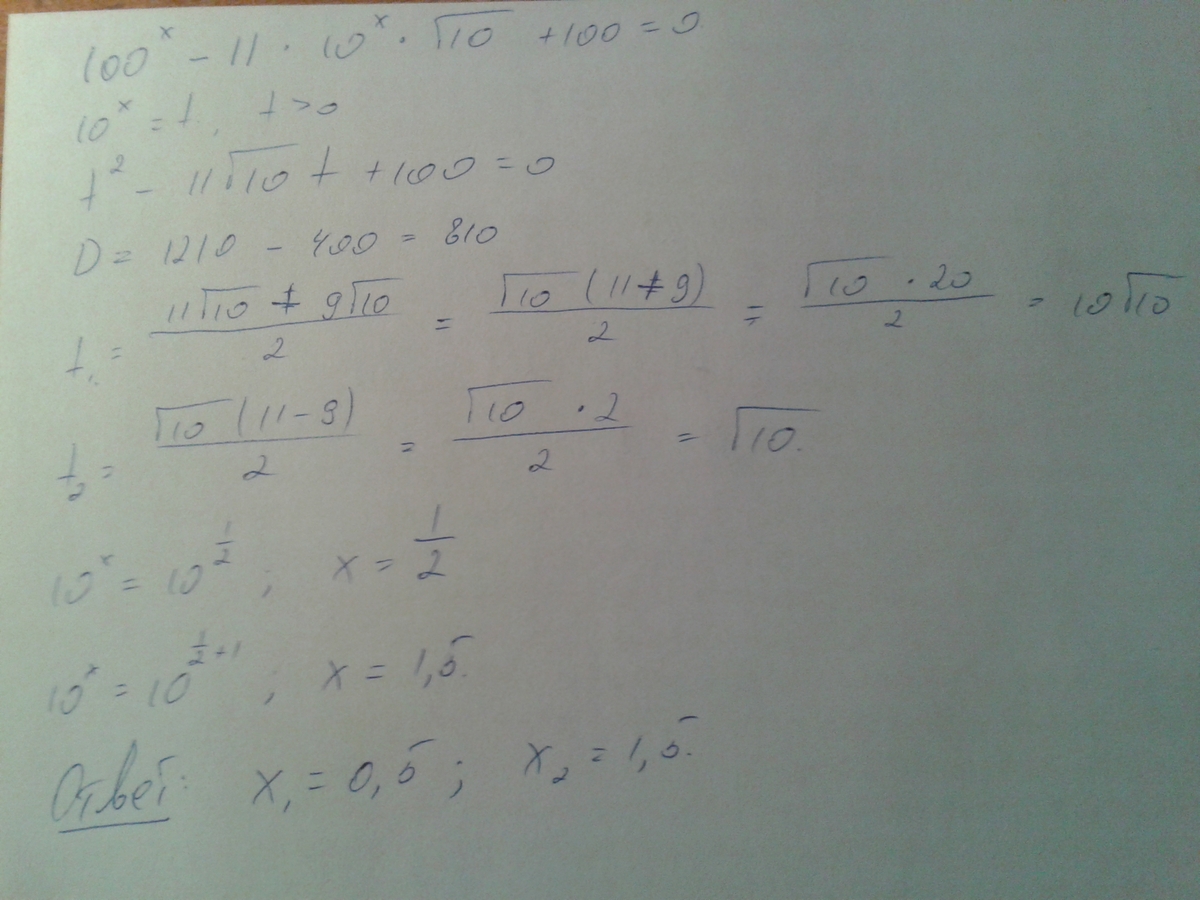 100^x - 11 · 10^x · √10 + 100 = 0
10^x = t, t > 0
t^2 - 11√10 t + 100 = 0
D = 1210 - 400 = 810
t₁ = (11√10 + 9√10)/2 = (√10 (11+9))/2 = (√10 · 20)/2 = 10√10
t₂ = (√10 (11-9))/2 = (√10 · 2)/2 = √10.
10^x = 10^(1/2) ; x = 1/2
10^x = 10^(1/2+1) ; x = 1,5.
Ответ: x₁ = 0,5 ; x₂ = 1,5.